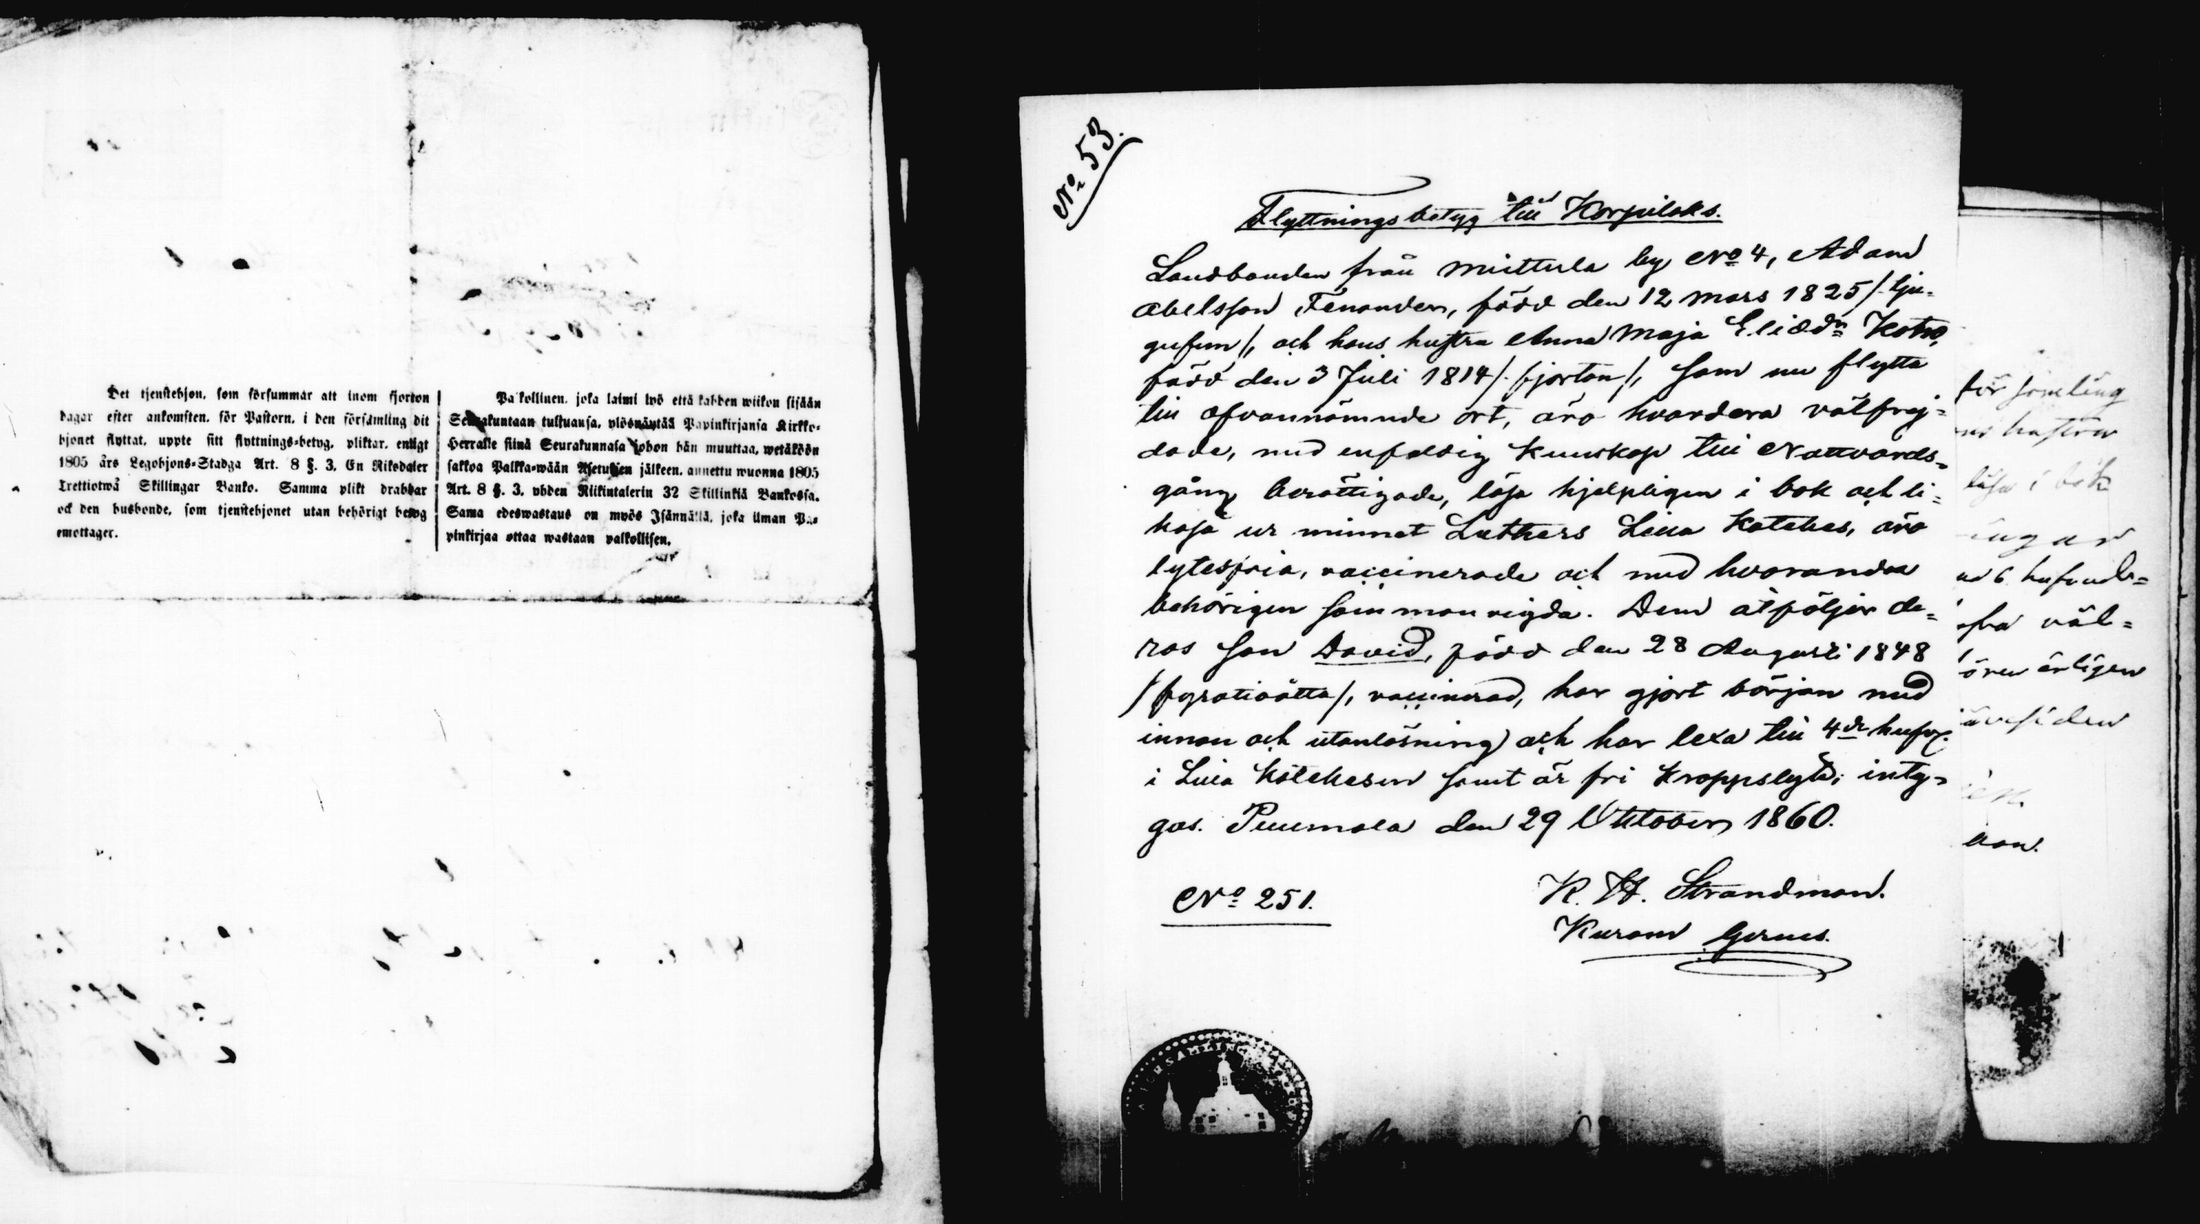 Det tjenstehjon, som försummar att inom fjorton
dagar efter ankomsten, för Pastorn, i den församling dit
hjonet flyttat, uppte sitt flyttnings-betyg, pliktar, enligt
1805 års Legohjons-Stadga Art. 8 §. 3. En Riksdaler
Trettiotwå Skillingar Banko. Samma plikt drabbar
ock den husbonde, som tjenstehjonet utan behörigt betyg
emottager.
Palkollinen, joka laimi lyö että kahden wiikon sisään
Seurakuntaan tultuansa, ylösnäytää Papinkirjansa Kirkko-
Herralle siinä Seurakunnasa johon hän muuttaa, wetäköön
sakkoa Palkka-wään Asetuksen jälkeen, annettu wuonna 1805
Art. 8 §. 3, yhden Riikintalerin 32 Skillinkiä Bankossa.
Sama edeswastaus on myös Isännällä, joka ilman Pa-
pinkirjaa ottaa wastaan palkollisen.
No 53.
Flyttningsbetyg till Korpilaks.
Landbonden från Mittula by No 4, Adam
Abelsson Tenonden, född den 12 Mars 1825 /: tju-
gufem /, och hans hustru Anna Maja Eliædr
född den 3 Juli 1814 /: fjorton /, som nu flytta
till ofvannämnde ort, äro hvardera välfrej-
dade, med enfaldig kunskap till Nattvards-
gång berättigade, läsa hjelpligen i bok och li-
kaså ur minnet Luthers Lilla Kateches, äro
lytesfria, vaccinerade och med hvarandra
behörigen sammanvigda. Dem åtföljer de-
ras son David, född den 28 Augusti 1848
/fyratioåtta/, vaccinerad, har gjort början med
innan och utanläsning och har lexa till 4de hufvst.
i Lilla Katekesen samt är fri kroppslyte; inty-
gas. Puumala den 29 Oktober 1860.
No 251.
K. H. Strandman.
för samling
hustru
läsa i bok
hufvud=
väl=
ärligen